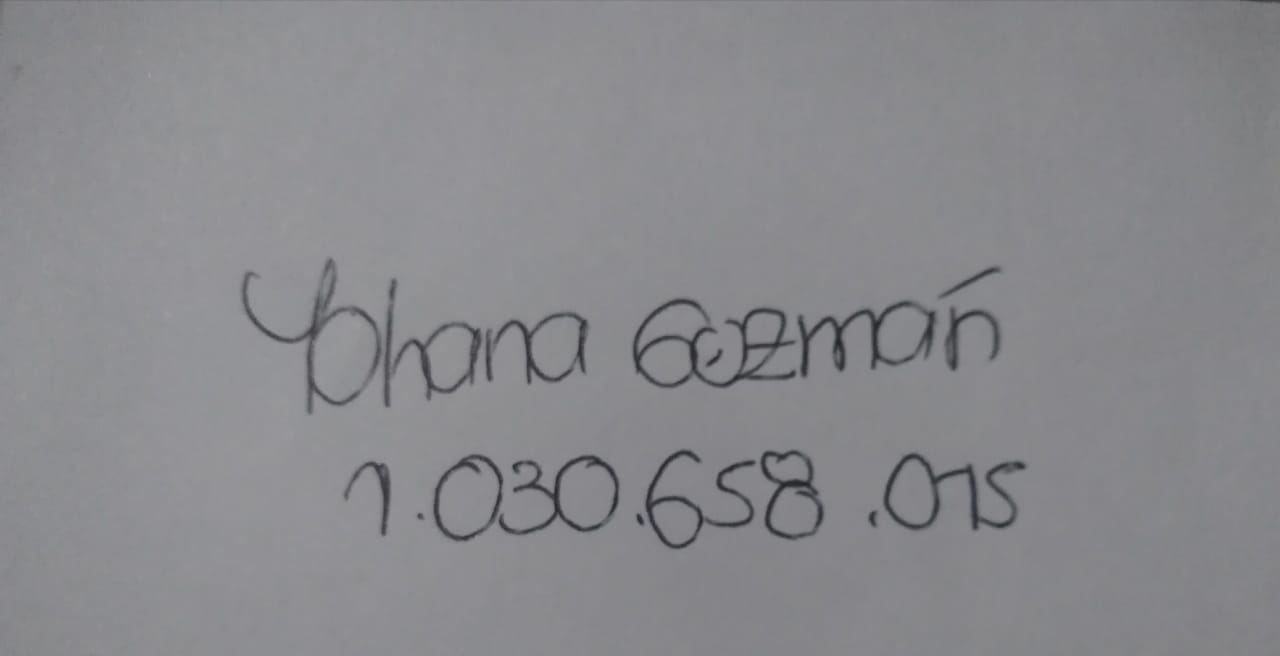 Yohana Guzmán
1.030.658.015